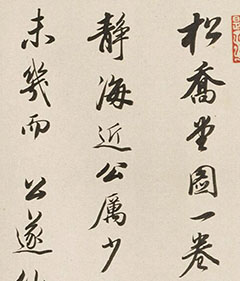 松喬堂圖一卷
靜海近公屬少
未幾而 公遂